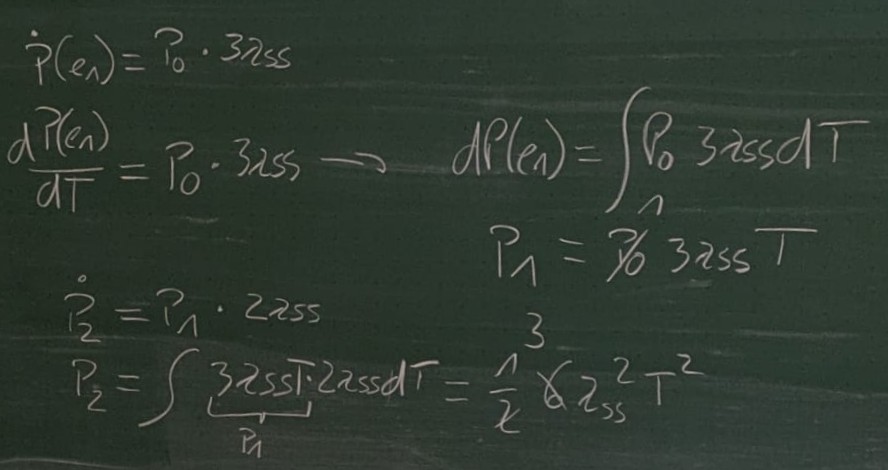 Ṗ(e₁) = P₀ · 3λss
dP(e₁)/dT = P₀ · 3λss → dP(e₁) = ∫ P₀ 3λss dT
1
P₁ = P₀ 3λss T
Ṗ₂ = P₁ · 2λss
3
P₂ = ∫ 3λssT·2λss dT = 1/2 6 λss² T²
P₁